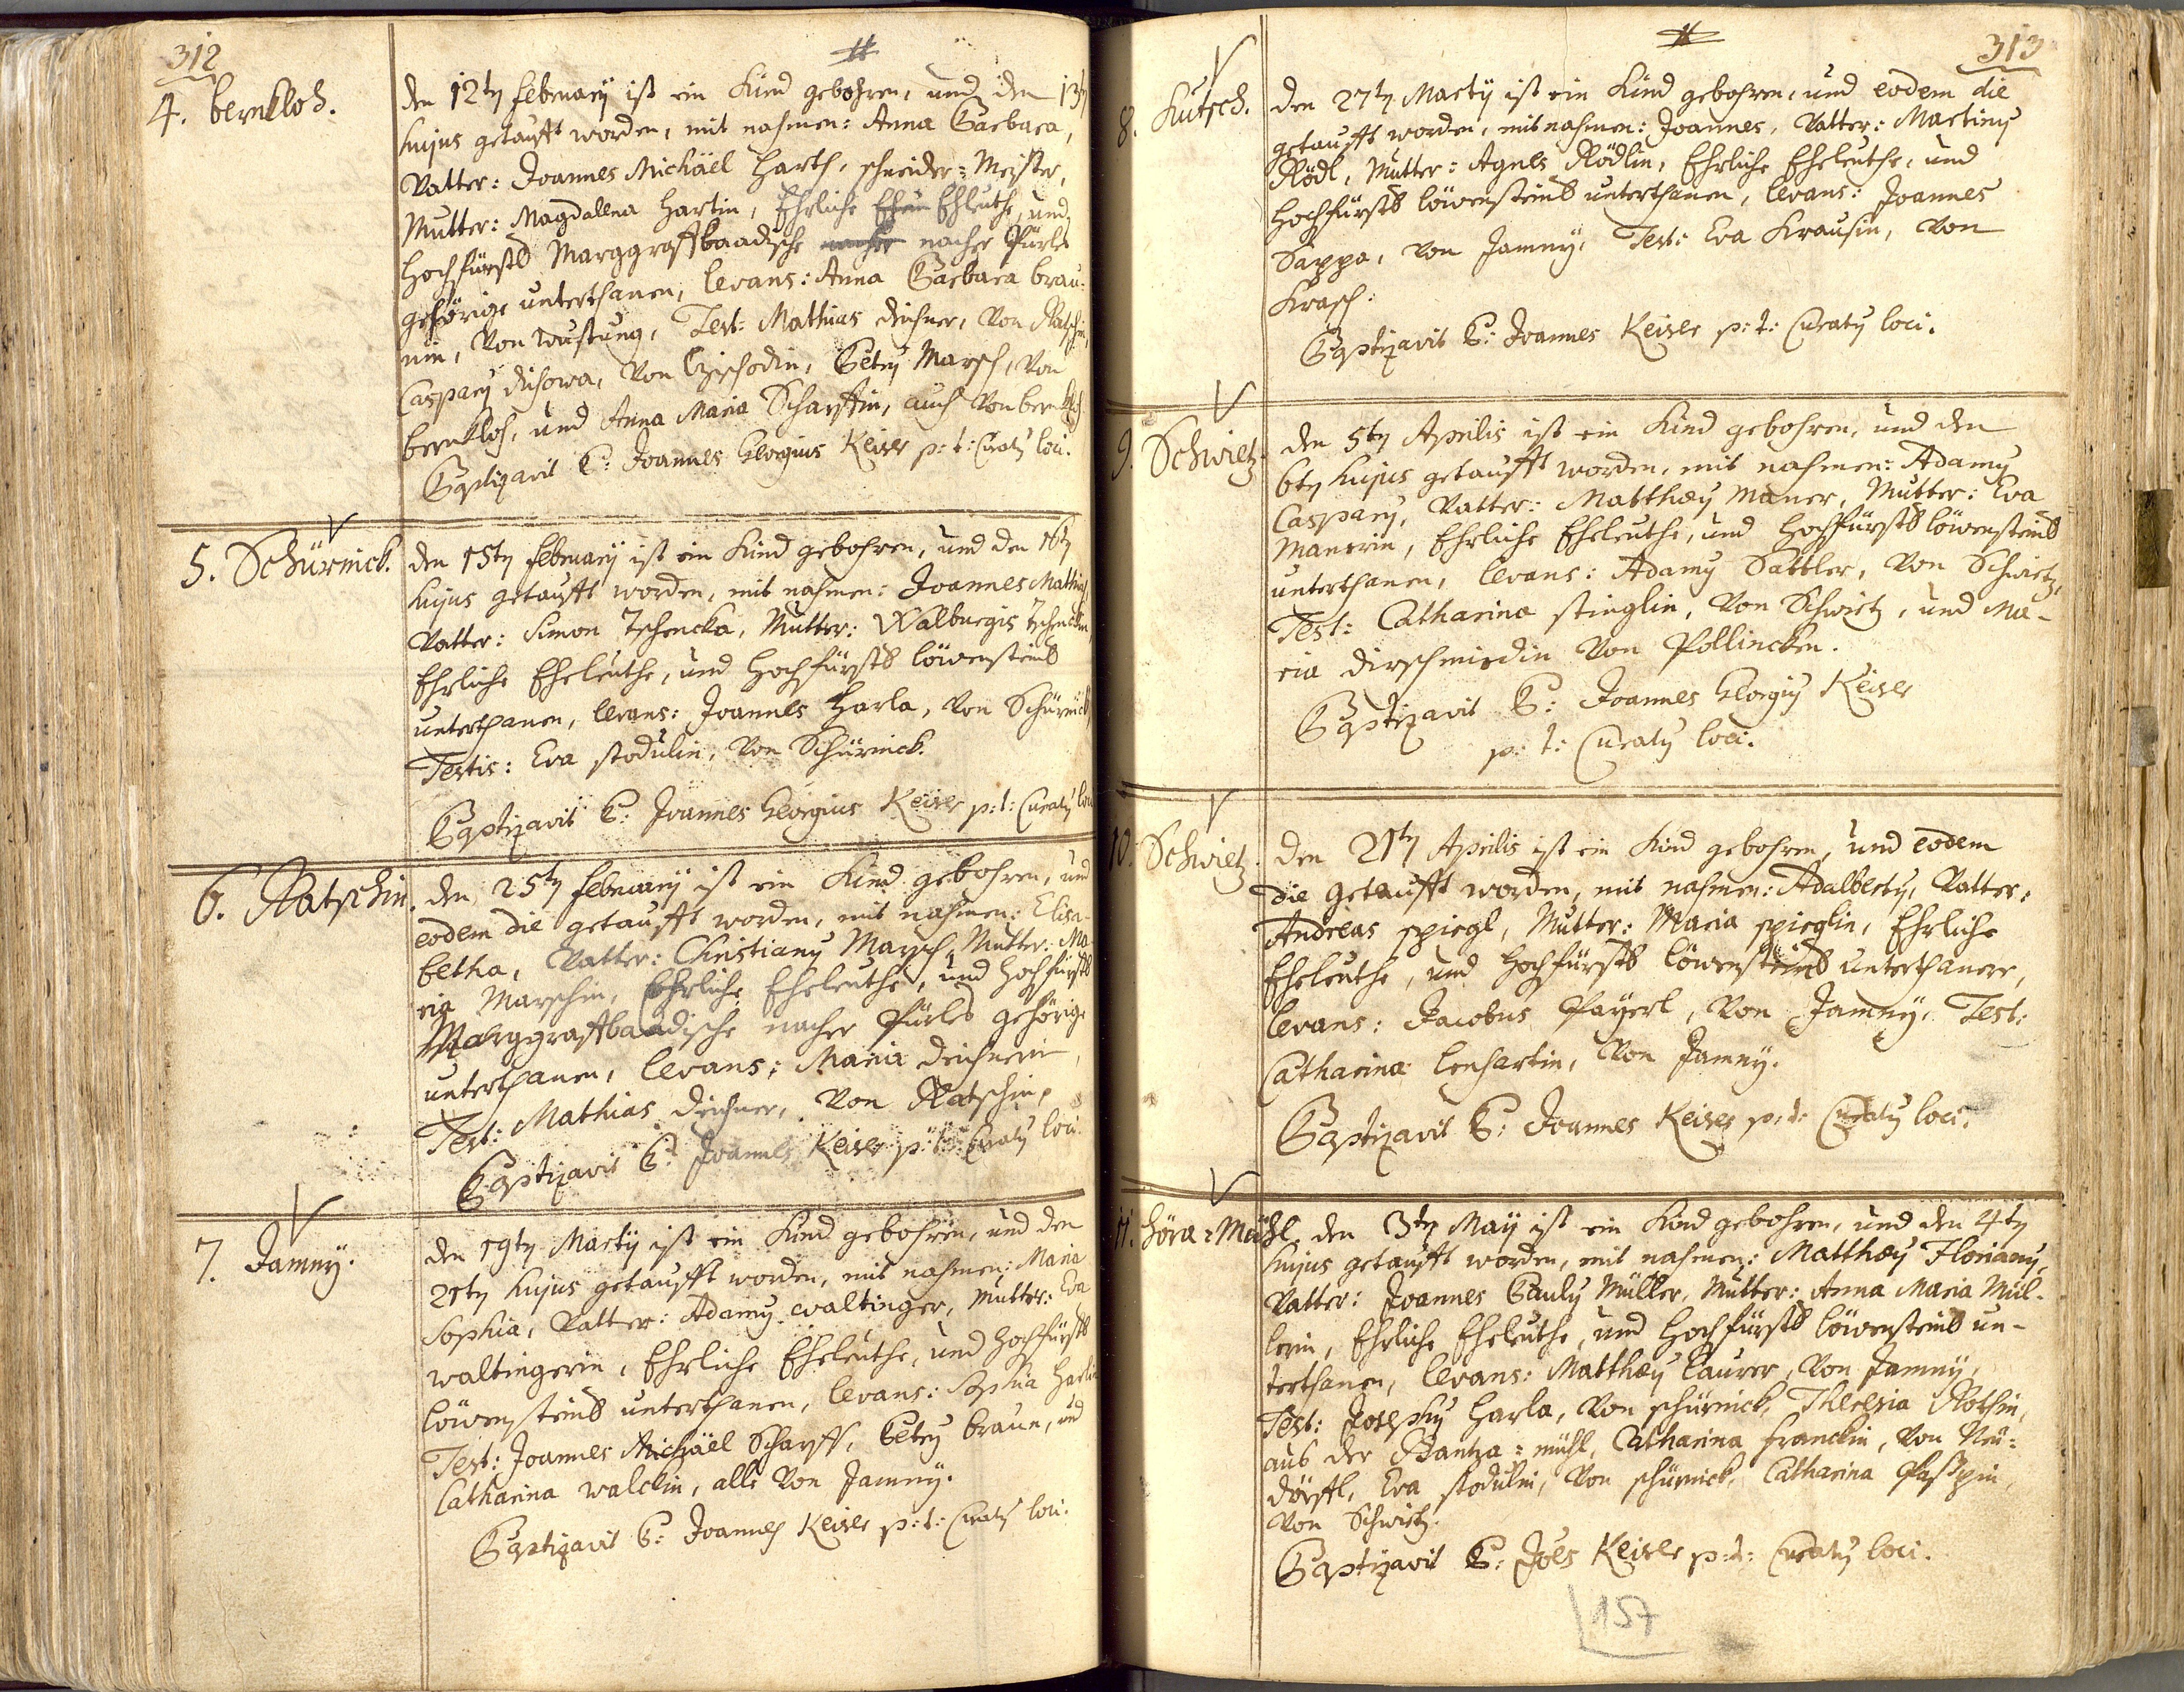 312
4. bernkloh.
den 12ten february ist ein Kind gebohren, und den 13ten
hujus getaufft worden, mit nahmen: Anna Barbara,
Vatter: Joannes Michäel Harth, schneider=Meister,
Mutter: Magdalena Hartin, Ehrliche Eheleuthe, und
Hochfürstl Marggraffbaadische nacher Pürles
gehörige unterthanen, levans: Anna Barbara brau=
nin, Von Wustung, Test: Mathias deichner, Von Ratschin,
Casparus Dichowa, Von Czischodin, Petrus Marsch, Von
bernkloh, und Anna Maria Scharffin, auch Von bernkloh.
Baptizavit P: Joannes Georgius Keiser p: t: Curatus loci.
5. Schürnick.
den 15ten february ist ein Kind gebohren, und den 16ten
hujus getaufft worden, mit nahmen: Joannes Mathias
Vatter: Simon Tschencka, Mutter: Walburgis Tschenckin,
Ehrliche Eheleuthe, und Hochfürstl löwensteins
unterthanen, levans: Joannes Harla, Von Schürnick,
Testis: Eva stodulin, Von Schürnick.
Baptizavit P: Joannes Georgius Keiser p: t: Curatus loci
6. Ratschin.
den 25ten february ist ein Kind gebohren, und
eodem die getaufft worden, mit nahmen: Elisa-
betha, Vatter: Christianus Marsch, Mutter: Ma-
ria Marschin, Ehrliche Eheleuthe, und Hochfürstl
Marggraffbaadische nacher Pürles gehörige
unterthanen, levans: Maria deichnerin,
Test: Mathias deichner, Von Ratschin.
Baptizavit P: Joannes Keiser p: t: Curatus loci.
7. Jamny.
den 19ten Martij ist ein Kind gebohren, und den
21ten hujus getaufft worden, mit nahmen: Maria
Sophia, Vatter: Adamus waltinger, Mutter: Eva
waltingerin, Ehrliche Eheleuthe, und Hochfürstl
löwensteins unterthanen, levans: Sophia Harlin
Test: Joannes Michäel Scharff, Petrus braun, und
Catharina walckin, alle Von Jamny.
Baptizavit P: Joannes Keiser p: t: Curatus loci.
313
8. Kutsch.
den 27ten Martij ist ein Kind gebohren, und eodem die
getaufft worden, mit nahmen: Joannes, Vatter: Martinus
Rödl, Mutter: Agnes Rödlin, Ehrliche Eheleuthe, und
Hochfürstl löwensteins unterthanen, levans: Joannes
Sappa, Von Jamny, Test: Eva Krausin, Von
Krasch:
Baptizavit P: Joannes Keiser p: t: Curatus loci.
9. Schwietz.
den 5ten Aprilis ist ein Kind gebohren, und den
6ten hujus getaufft worden, mit nahmen: Adamus
Casparus, Vatter: Matthæus Maner, Mutter: Eva
Manerin, Ehrliche Eheleuthe, und Hochfürstl löwensteins
unterthanen, levans: Adamus Sattler, Von Schwietz,
Test: Catharina stinglin, Von Schwietz, und Ma-
ria dirschmiedin Von Pollincken.
Baptizavit P: Joannes Georgius Keiser
p: t: Curatus loci.
10. Schwietz.
den 21ten Aprilis ist ein Kind gebohren, und eodem
die getaufft worden, mit nahmen: Adalbertus, Vatter:
Andreas spiegl, Mutter: Maria spieglin, Ehrliche
Eheleuthe, und Hochfürstl löwensteins unterthanen,
levans: Jacobus Payerl, Von Jamny, Test:
Catharina lenhartin, Von Jamny.
Baptizavit P: Joannes Keiser p: t: Curatus loci.
11. Höra=Mühl.
den 3ten May ist ein Kind gebohren, und den 4ten
hujus getaufft worden, mit nahmen: Matthæus Florianus,
Vatter: Joannes Paulus Müller, Mutter: Anna Maria Mül-
lerin, Ehrliche Eheleuthe, und Hochfürstl löwensteins un-
terthanen, levans: Matthæus Laurer, Von Jamny,
Test: Josephus Harla, Von schürnick, Theresia Rothin,
aus der Bantza=mühl, Catharina franckin, Von Neü=
dörffl, Eva stodulin, Von schürnick, Catharina
Von Schwietz.
Baptizavit P: Joes Keiser p: t: Curatus loci.
157